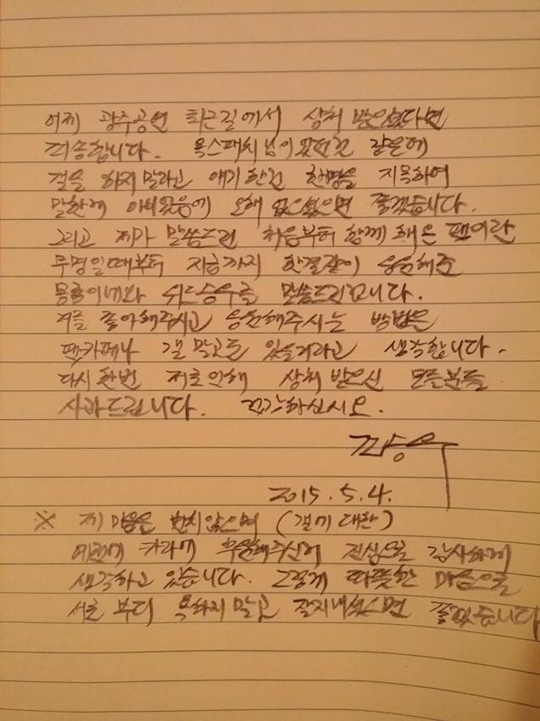 어제 광주공연 퇴근길에서 상처 받으셨다면
죄송합니다. 욕스패치님이 있었던 같은데
걸을 하지말라고 얘기한건 한명을 지목하여
말한게 아니었음에 오해 없으셨으면 좋겠습니다.
그리고 제가 말씀드린 처음부터 함께 해온 팬이란
무명일때부터 지금까지 한결같이 응원해준
몽룡이네와 위드승우를 말씀드린겁니다.
저를 좋아해주시고 응원해주시는 방법은
팬카페나 갤 말고도 있을거라고 생각합니다.
다시한번 저로인해 상처 받으신 모든분들
사과드립니다. 건강하십시오.
2015. 5. 4.
※ 제 마음은 변치않으며 (갤에 대한)
예전에 카라에 후원해주신거 진심으로 감사하게
생각하고 있습니다. 그렇게 따뜻한 마음으로
서로 부디 욕하지말고 잘지내셨으면 좋겠습니다